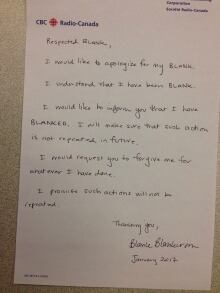 Corporation
Société Radio-Canada
CBC Radio-Canada
Respected BLANK,
I would like to apologize for my BLANK.
I understand that I have been BLANK.
I would like to inform you that I have
BLANKED. I will make sure that such action
is not repeated in future.
I would request you to forgive me for
whatever I have done.
I promise such actions will not be
repeated.
Thanking you,
Blank Blankerson
January 2017